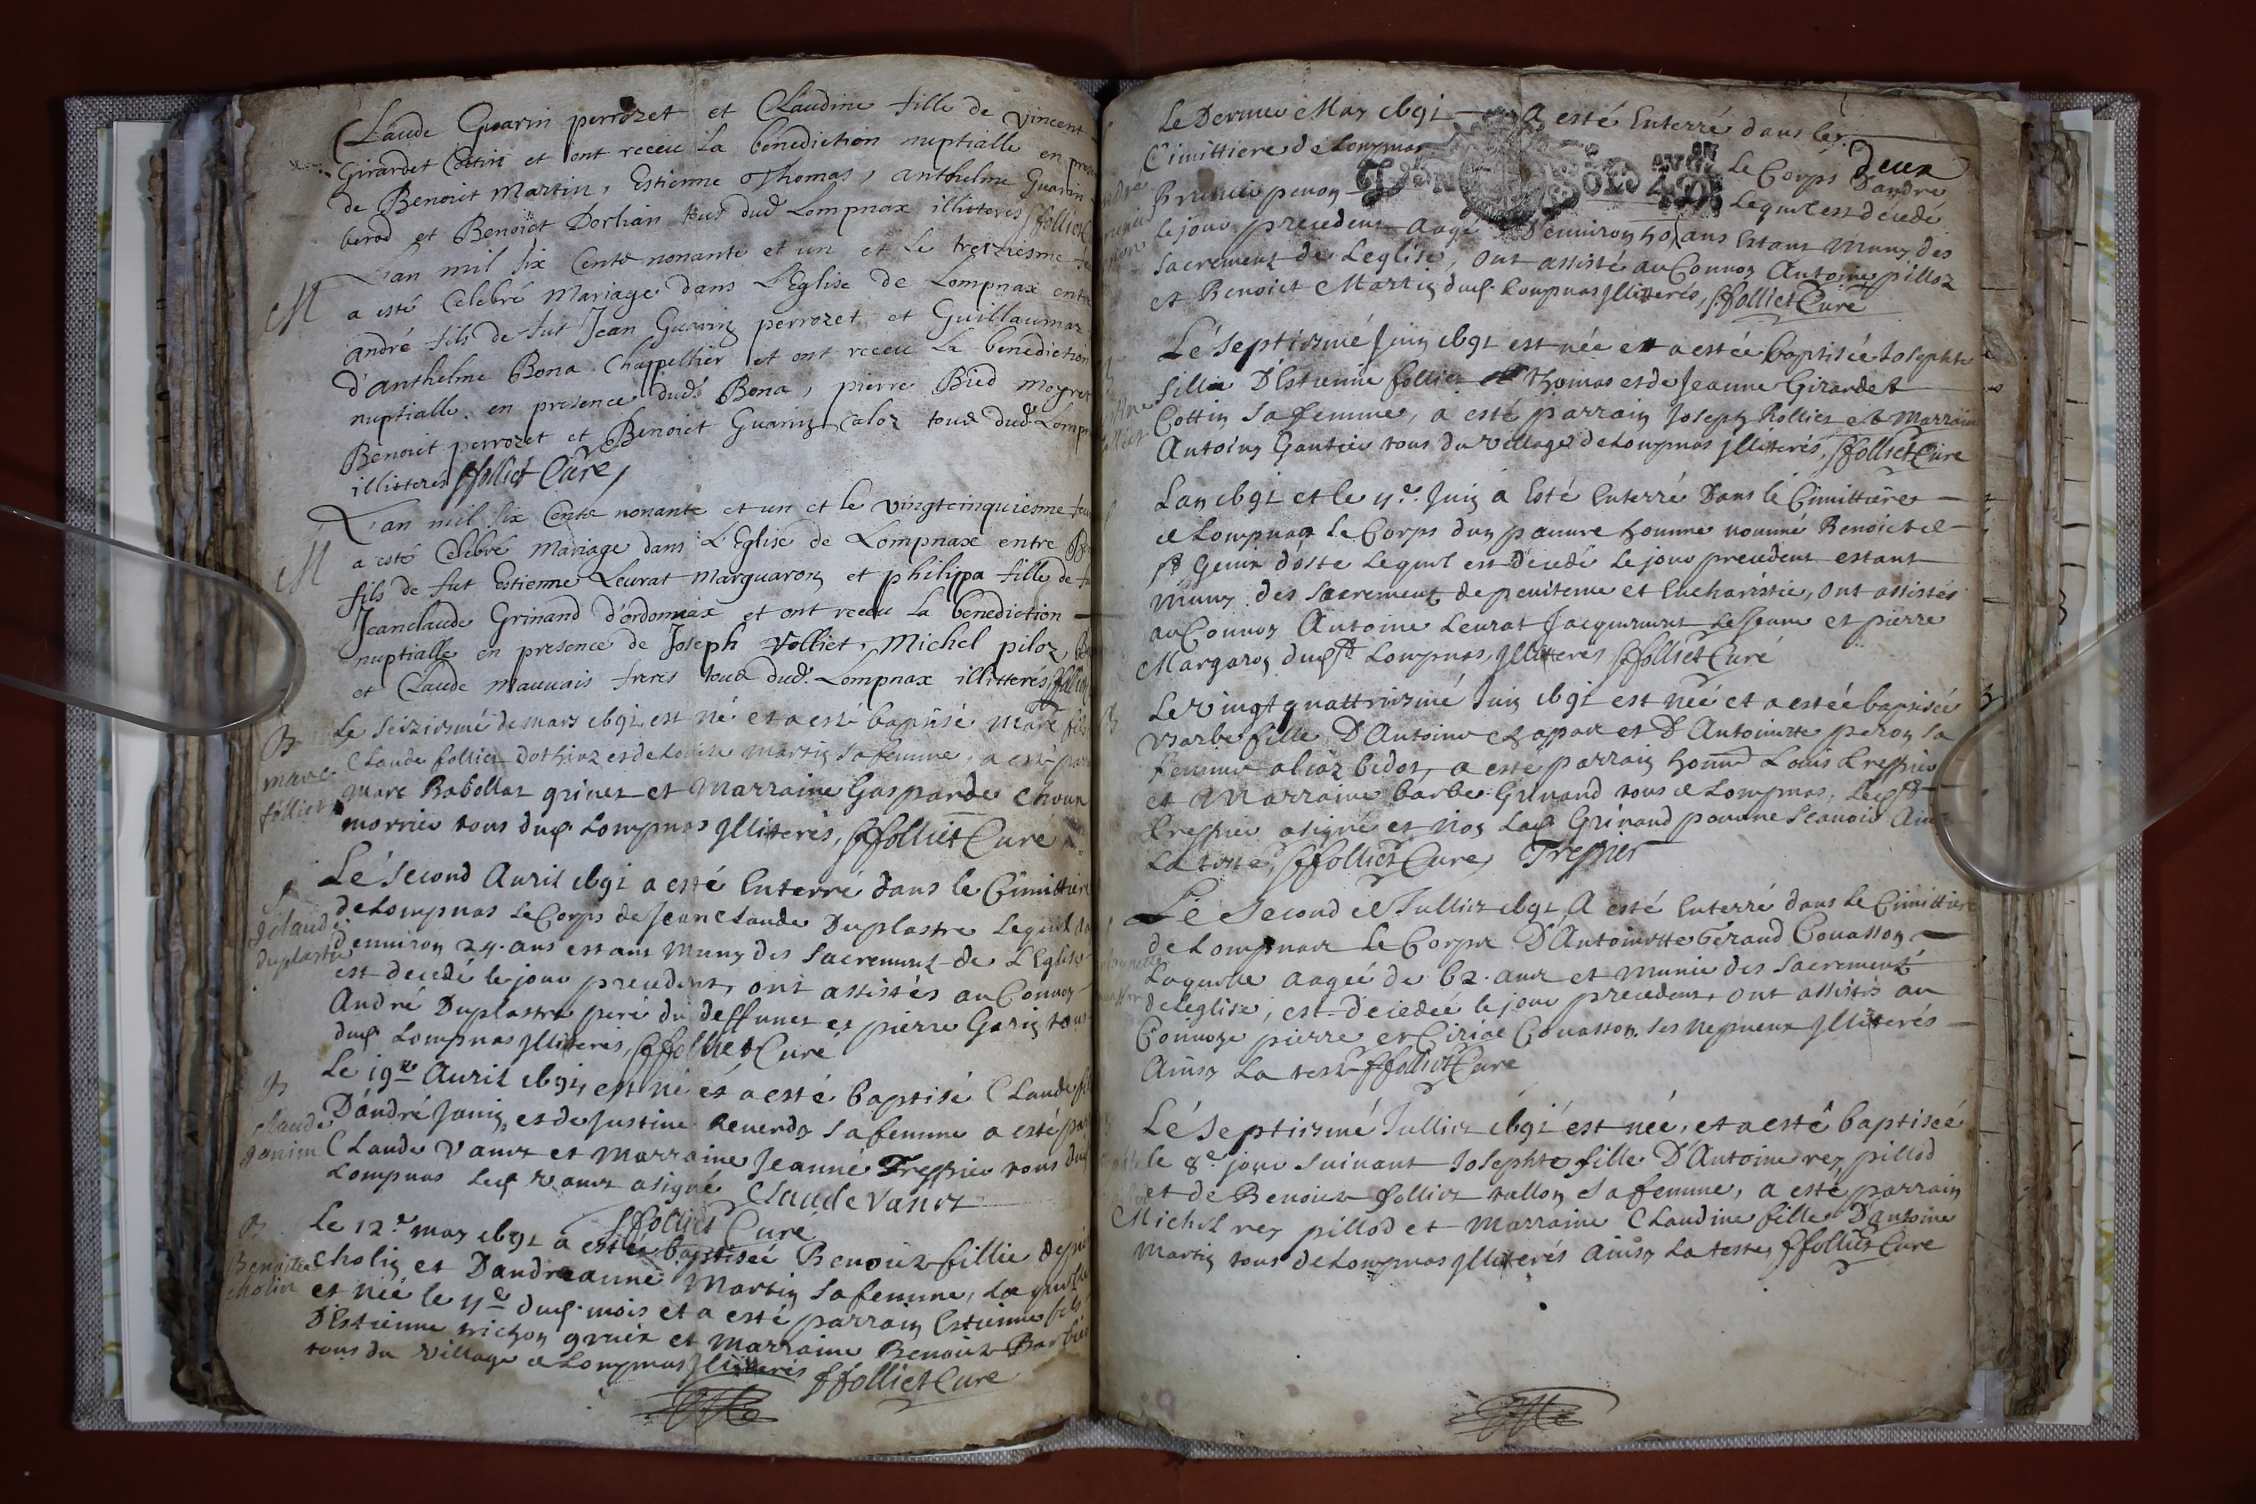 Claude Guarin perrozet et Claudine fille de vincent
Girardet Cottin et ont receu la benediction nuptialle en
de Benoict Martin, Estienne Thomas, anthelme Guarin
berod et Benoict Dorlian tous dud Lompnax illitteres ffolliet
M
Lan mil six Cents nonante et un et le treziesme
a esté Celebré Mariage dans L'Eglise de Lompnax entre
andré fils de fut Jean Guarin perrozet et Guillaumaz
d'anthelme Bona Chappellier et ont receu la benediction
nuptialle en presence dud Bona, pierre Bied Moyret
Benoict perrozet et Benoict Guarin Caloz tous dud Lomp
illitterés ffolliet Curé
M
L'an mil six Cents nonante et un et le vingtcinquiesme
a esté Celebré Mariage dans L'Eglise de Lompnax entre
fils de fut Estienne Leurat Marguaron et philipa fille de
Jeanclaude Grinand d'ordonnax et ont receu la benediction
nuptialle en presence de Joseph volliet, Michel piloz
et Claude Mauvais freres tous dud. Lompnax illitterés ffolliet
B
marc
folliet
Le seiziesme de mars 1691 est né et a esté baptisé Marc fils
Claude folliet dothioz et de Martin sa femme, a esté par
Marc Rabollaz griner et Marraine Gasparde
morrier tous dud Lompnas Illitterés, ffolliet Curé
S
Jclaude
duplastre
Le second Auril 1691 a esté Enterré dans le Cimittiere
de Lompnas le Corps de Jean Claude Duplastre Lequel
d'enuiron 24. ans estant Muny des sacrements de L'Eglise
est decedé le jour precedent, ont assistés au Conuoy
André Duplastre pere du deffunct et pierre Garin tous
dud Lompnas Illitteres, ffolliet Curé
B
Claude
Janin
Le 19e Auril 1691, est né et a esté baptisé Claude
D'andré Janin, et de Justine Reuerdy sa femme a esté par
Claude Vanet et Marraine Jeanne Treppier tous dud
Lompnas Led Vanet a signé Claude Vanet
ffolliet Curé
B
Benoitte
cholin
Le 12e may 1691 a estée baptisée Benoite fillie de
Cholin et D'andreanne Martin sa femme, Laquelle
est née le 11e dud. mois et a esté parrain Estienne fils
D'Estienne trichon gruin et Marraine Benoite Barbier
tous du village de Lompnas Illitterés ffolliet Curé
Le Dernier May 1691 a esté Enterré dans les
Cimittiere de Lompnas Le Corps D'andre
Brunier peron Lequel est decedé
deux
GEN SOLS 4 D
le jour precedent aagé D'enuiron 40 ans Estant Muny des
sacrement de Leglise, ont assisté au Conuoy Antoine pilloz
et Benoict Martin dud. Lompnas Illitterés, ffolliet Curé
Le septiesme Juin 1691 est née et a estée baptisée Josephte
fillie D'Estienne folliet Thomas et de Jeanne Girardet
Cottin sa femme, a esté parrain Joseph Rolliet et Marraine
Antoine Gantier tous du village de Lompnas Illitterés, ffolliet Curé
Lan 1691 et le 11e. Juin a Esté Enterré Dans le Cimittiere
de Lompnas Le Corps d'un pauure homme nommé Benoict
Genin doste Lequel est decedé Le jour precedent estant
Muny des sacrement de penitence et Eucharistie, ont assistés
au Conuoy Antoine Leurat Jacquemmet Le Jeune et pierre
Margaron dud Lompnas, Illitterés ffolliet Curé
Le vingt quattriesme Juin 1691 est née et a estée baptisée
Barbe fille D'Antoine Chappaz et D'Antoinette peron sa
femme alioz bidos, a esté parrain honn Louis Treppier
et Marraine barbe Grinand tous de Lompnas, Led
Treppier a signé et non Lad Grinand pour ne scauoir Ain
La teste, ffolliet Curé, Treppier
Le second de Julliet 1691 A esté Enterré dans le Cimittiere
de Lompnax Le Corps D'Antoinette Geraud Couasson
Laquelle aagée de 62. ans et munie des sacrement
de leglise, est decedée le jour precedent, ont assistés au
Conuoye pierre et Ciriae Couasson ses nepueux Illitterés
Ainsy La teste ffolliet Curé
Le septiesme Julliet 1691 est née, et a esté baptiseé
le 8e jour suiuant Josephte fille D'Antoine rey pillod
et de Benoite folliet vallon sa femme, a esté parrain
Michel rey pillod et Marraine Claudine fille D'antoine
Martin tous de Lompnas Illitterés Ainsy La teste, ffolliet Curé